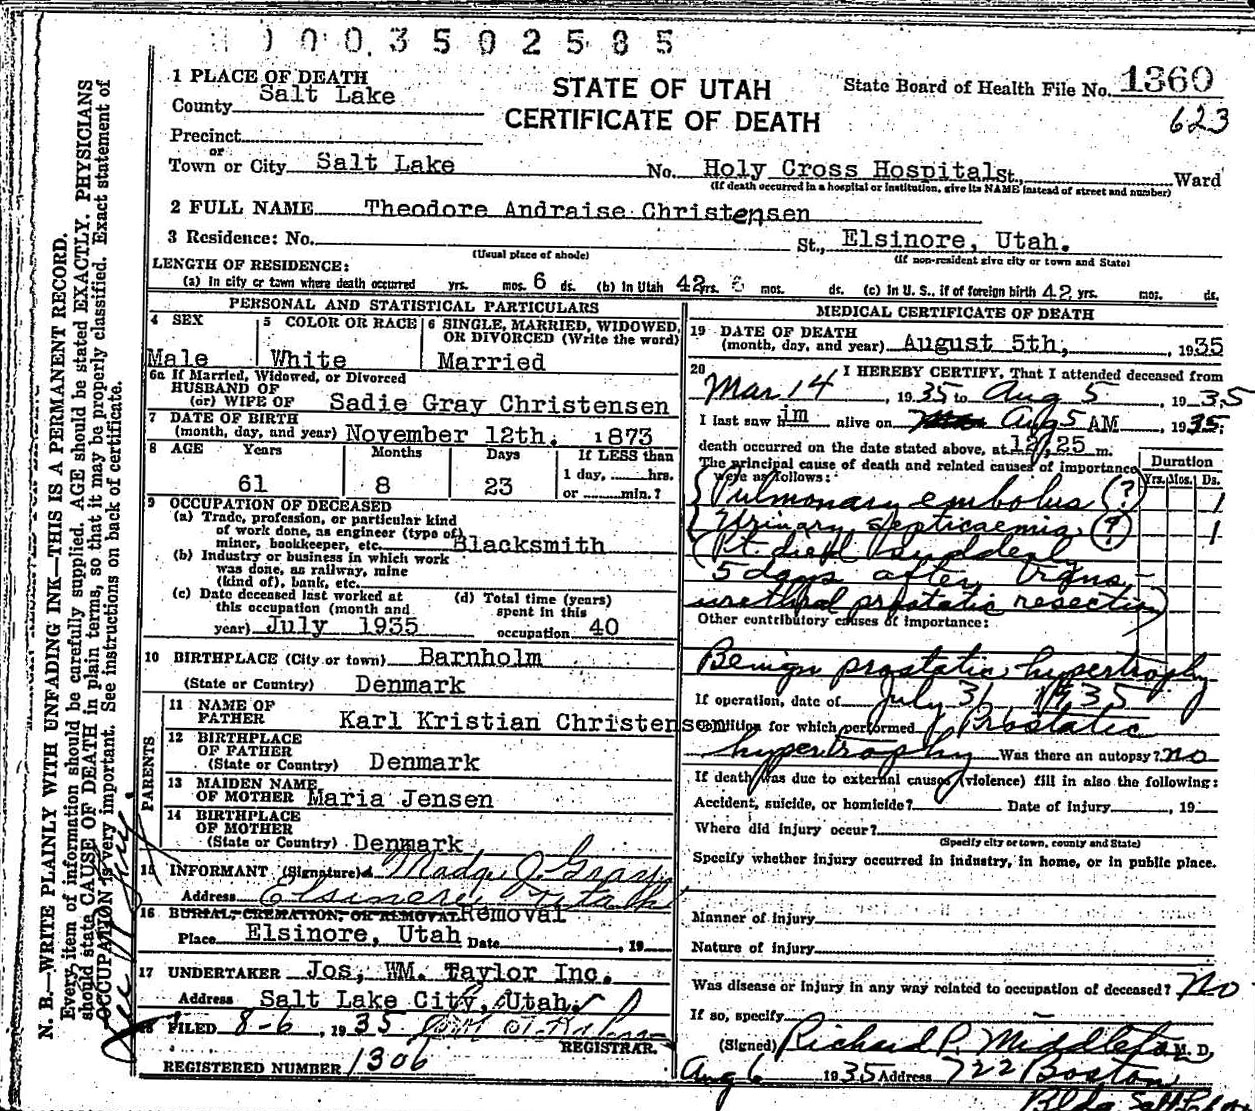 1003502585
1 PLACE OF DEATH
County Salt Lake
STATE OF UTAH
CERTIFICATE OF DEATH
State Board of Health File No. 1360
623
Precinct
or
Town or City Salt Lake No. Holy Cross Hospital St., Ward
(If death occurred in a hospital or institution, give its NAME instead of street and number)
2 FULL NAME Theodore Andraise Christensen
3 Residence: No. St., Elsinore, Utah.
(Usual place of abode) (If non-resident give city or town and State)
LENGTH OF RESIDENCE:
(a) In city or town where death occurred yrs. mos. 6 ds. (b) In Utah 42 yrs. 6 mos. ds. (c) In U. S., if of foreign birth 42 yrs. mos. ds.
PERSONAL AND STATISTICAL PARTICULARS
4 SEX 5 COLOR OR RACE 6 SINGLE, MARRIED, WIDOWED,
OR DIVORCED (Write the word)
Male White Married
6a If Married, Widowed, or Divorced
HUSBAND OF
(or) WIFE OF Sadie Gray Christensen
7 DATE OF BIRTH
(month, day, and year) November 12th. 1873
8 AGE Years Months Days If LESS than
1 day, hrs.
61 8 23 or min.?
9 OCCUPATION OF DECEASED
(a) Trade, profession, or particular kind
of work done, as engineer (type of)
miner, bookkeeper, etc. Blacksmith
(b) Industry or business in which work
was done, as railway, mine
(kind of), bank, etc.
(c) Date deceased last worked at
this occupation (month and
year) July 1935
(d) Total time (years)
spent in this
occupation 40
10 BIRTHPLACE (City or town) Barnholm
(State or Country) Denmark
PARENTS
11 NAME OF
FATHER Karl Kristian Christensen
12 BIRTHPLACE
OF FATHER
(State or Country) Denmark
13 MAIDEN NAME
OF MOTHER Maria Jensen
14 BIRTHPLACE
OF MOTHER
(State or Country) Denmark
15 INFORMANT (Signature) Madge J.
Address Elsinore Utah
16 BURIAL, CREMATION, OR REMOVAL Removal
Place Elsinore, Utah Date , 19
17 UNDERTAKER Jos, WM. Taylor Inc.
Address Salt Lake City, Utah.
18 FILED 8-6, 1935
REGISTRAR.
REGISTERED NUMBER 1306
MEDICAL CERTIFICATE OF DEATH
19 DATE OF DEATH
(month, day, and year) August 5th, , 1935
20 I HEREBY CERTIFY, That I attended deceased from
Mar 14, 1935 to Aug 5, 1935
I last saw him alive on Aug 5 AM, 1935;
death occurred on the date stated above, at 12,25 m.
The principal cause of death and related causes of importance
were as follows:
Duration
Yrs. Mos. Ds.
Pulmonary embolus (?) 1
Urinary septicaemia (?) 1
(Pt. died suddenly
5 days after Trans-
urethral prostatic resection)
Other contributory causes of importance:
Benign prostatic hypertrophy
If operation, date of July 31 1935
Condition for which performed Prostatic
hypertrophy Was there an autopsy? no
If death was due to external causes (violence) fill in also the following:
Accident, suicide, or homicide? Date of injury , 19
Where did injury occur?
(Specify city or town, county and State)
Specify whether injury occurred in industry, in home, or in public place.
Manner of Injury
Nature of Injury
Was disease or injury in any way related to occupation of deceased? No
If so, specify
(Signed) Richard P. Middleton M. D.
Aug 6 1935 Address 722 Boston
Bldg Salt
N. B.—WRITE PLAINLY WITH UNFADING INK—THIS IS A PERMANENT RECORD.
Every item of information should be carefully supplied. AGE should be stated EXACTLY. PHYSICIANS
should state CAUSE OF DEATH in plain terms, so that it may be properly classified. Exact statement of
OCCUPATION is very important. See instructions on back of certificate.